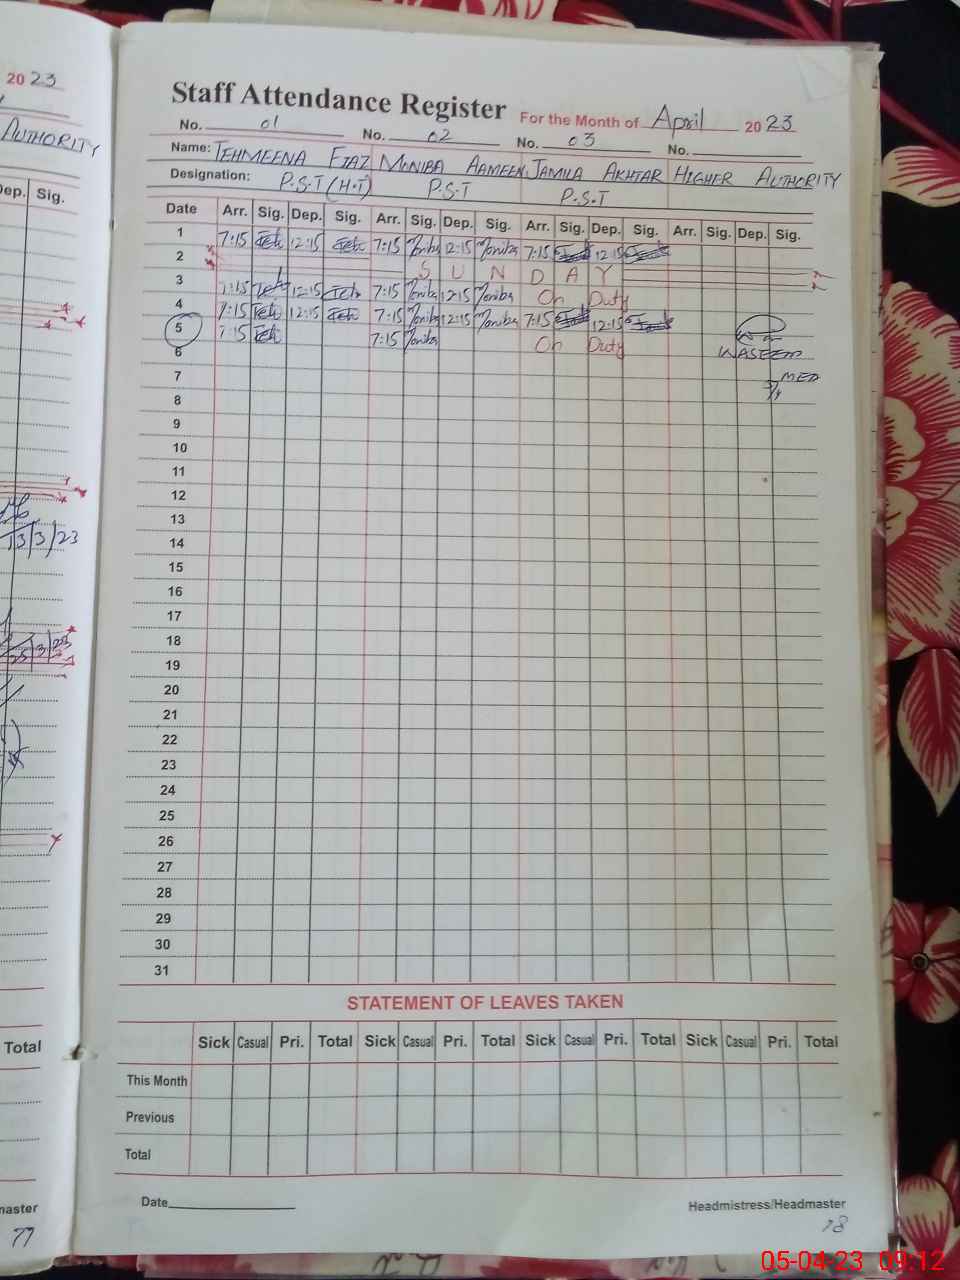 2023
AUTHORITY
Dep. Sig.
13/3/23
25/3/23
Total
master
77
Staff Attendance Register For the Month of April 2023
No. 01 No. 02 No. 03 No.
Name: TEHMEENA EJAZ MONIBA AAMEEN JAMILA AKHTAR HIGHER AUTHORITY
Designation: P.S.T (H.T) P.S.T P.S.T
Date Arr. Sig. Dep. Sig. Arr. Sig. Dep. Sig. Arr. Sig. Dep. Sig. Arr. Sig. Dep. Sig.
1 7:15 Teh 12:15 Teh 7:15 Moniba 12:15 Moniba 7:15 12:15
2 SUNDAY
3 7:15 Teh 12:15 Teh 7:15 Moniba 12:15 Moniba On Duty
4 7:15 Teh 12:15 Teh 7:15 Moniba 12:15 Moniba 7:15 12:15
5 7:15 Teh 7:15 Moniba On Duty
6 WASEEM
7 MEA
8
9
10
11
12
13
14
15
16
17
18
19
20
21
22
23
24
25
26
27
28
29
30
31
STATEMENT OF LEAVES TAKEN
Sick Casual Pri. Total Sick Casual Pri. Total Sick Casual Pri. Total Sick Casual Pri. Total
This Month
Previous
Total
Date
Headmistress/Headmaster
78
05-04-23 09:12